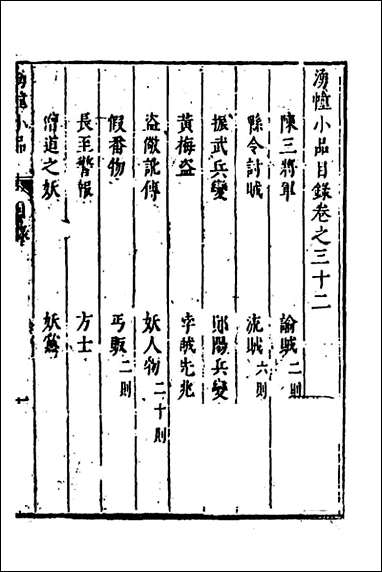 湧幢小品目録卷之三十二
陳三將軍 諭賊二則
縣令討賊 流賊六則
振武兵變 鄖陽兵變
黃梅盜 孛賊先兆
盜徽訛傳 妖人物二十則
假番物 丐販二則
長至警報 方士
僧道之妖 妖黨
湧幢小品